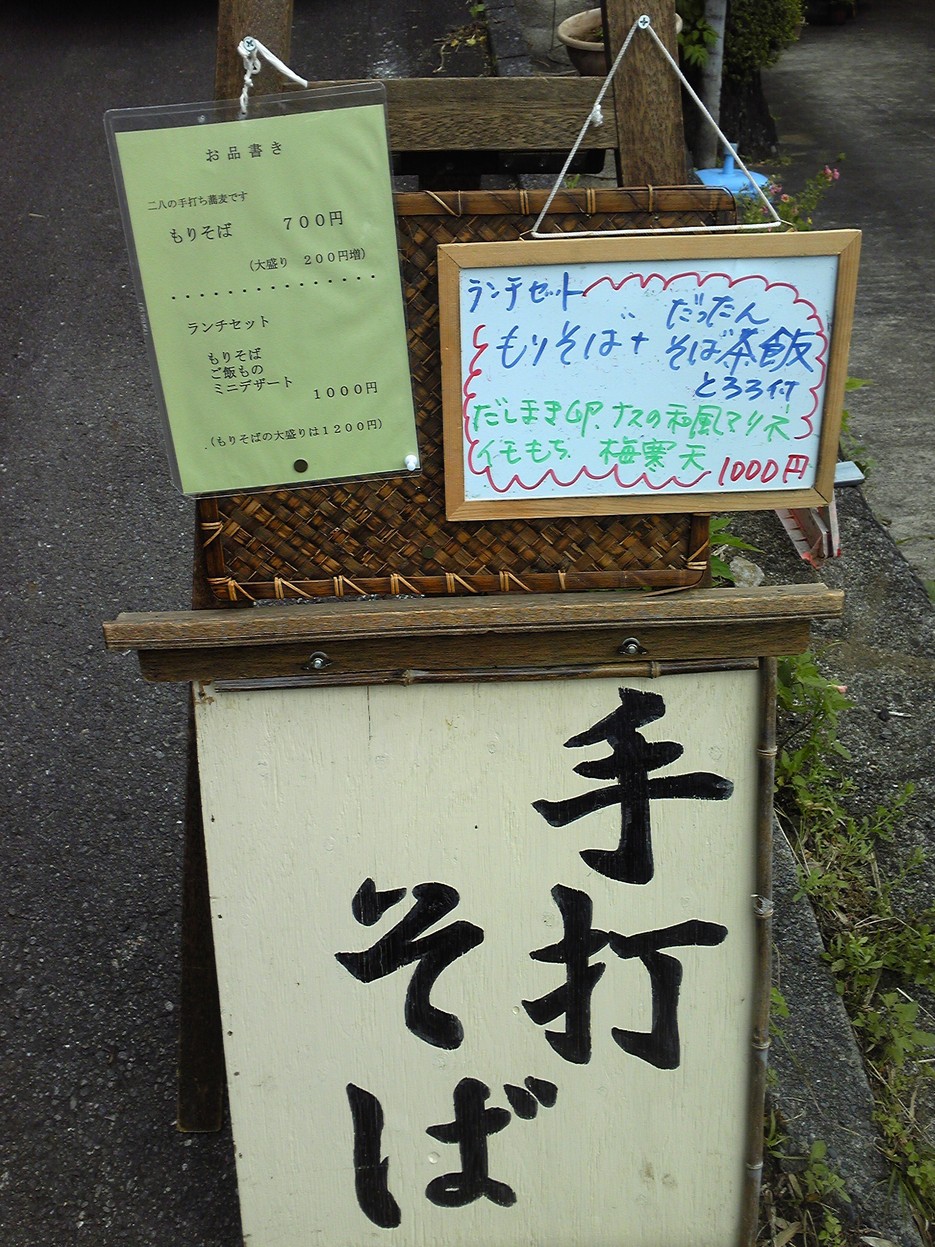 お品書き
二八の手打ち蕎麦です
もりそば　７００円
（大盛り　２００円増）
・・・・・・・・・・・・・・・
ランチセット
もりそば
ご飯もの
ミニデザート
１０００円
（もりそばの大盛りは１２００円）
ランチセット
もりそば+ だったんそば茶飯
とろろ付
だしまき卵、ナスの和風マリネ
イモもち、梅寒天
1000円
手打
そば